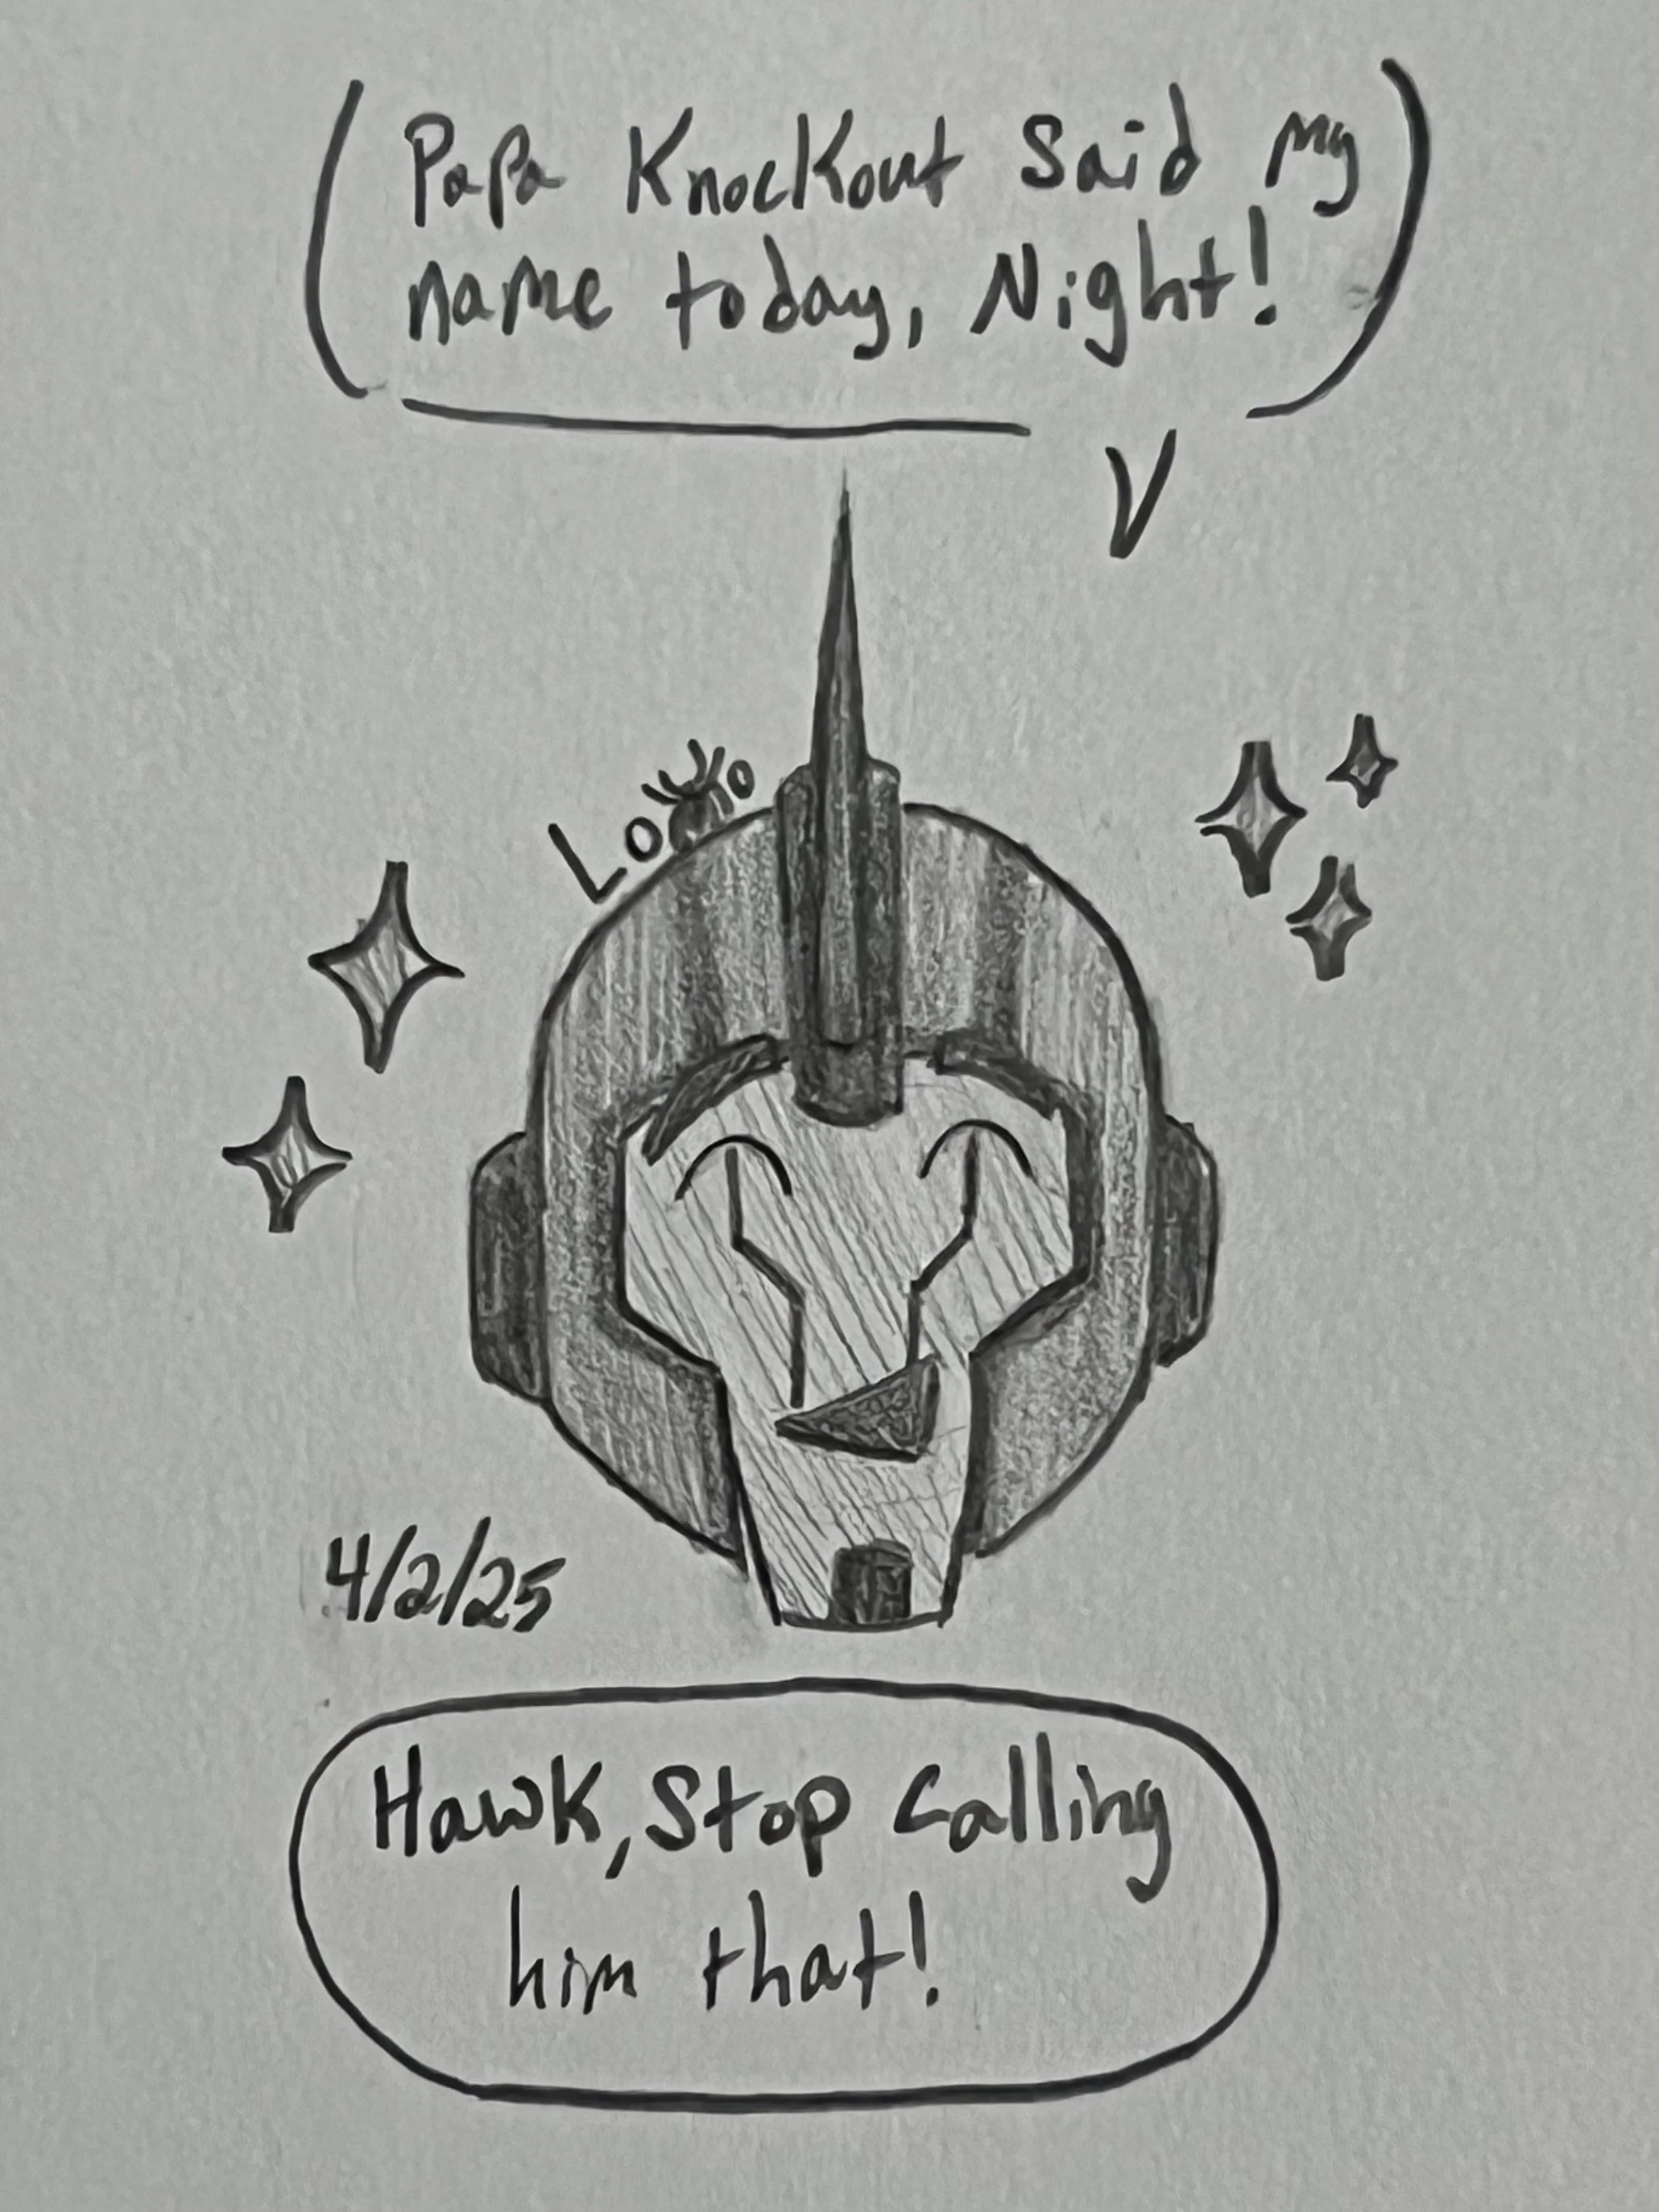 Papa Knockout Said my
name today, Night!
4/2/25
Hawk, Stop Calling
him that!